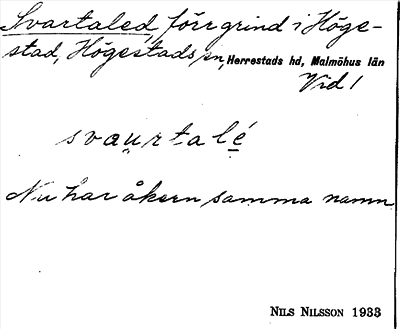 Svartaled, förr grind i Höge-
stad, Högestads sn, Herrestads hd, Malmöhus län
Vid 1
svaụrtalé
Nu har åkern samma namn
NILS NILSSON 1933